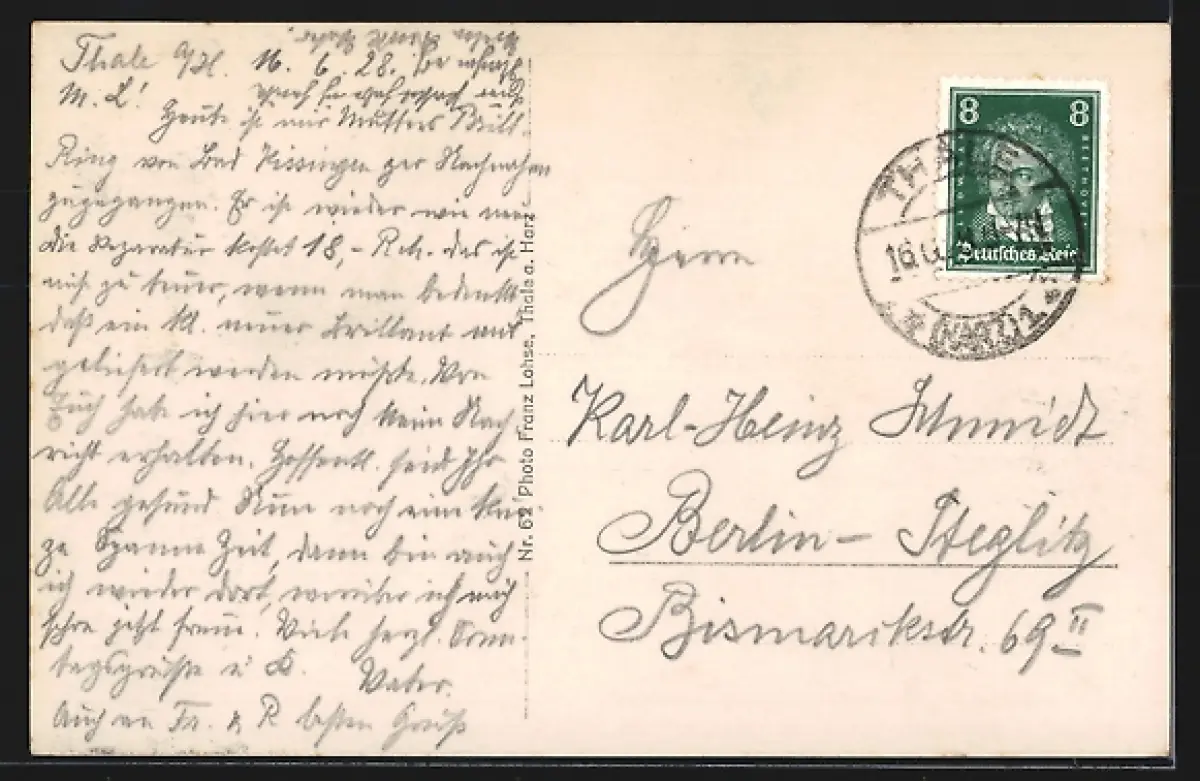 Thale a/H. 16. 6. 28.
M. L!
Heute ist mir Mutters Brill.
Ring von Bad Kissingen per Nachnahme
zugegangen. Er ist wieder wie neu
die Reparatur kostet 18,- Rm. das ist
nicht zu teuer, wenn man bedenkt
daß ein kl. neuer Brillant mit
geliefert werden mußte. Von
Euch habe ich hier noch keine Nach
richt erhalten. Hoffentl. seid Ihr
Alle gesund. Nun noch eine kur
ze Spanne Zeit, dann bin auch
ich wieder dort, worüber ich mich
schon jetzt freue. Viele herzl. Sonn-
tagsgrüße u. K.
Vater.
Auch an Fr. R besten Gruß
Nr. 62 Photo Franz Lohse, Thale a. Harz
8 8
BEETHOVEN
Deutsches Reich
THALE
16.6.
(HARZ) 1
Herrn
Karl-Heinz Schmidt
Berlin-Steglitz
Bismarckstr. 69 II